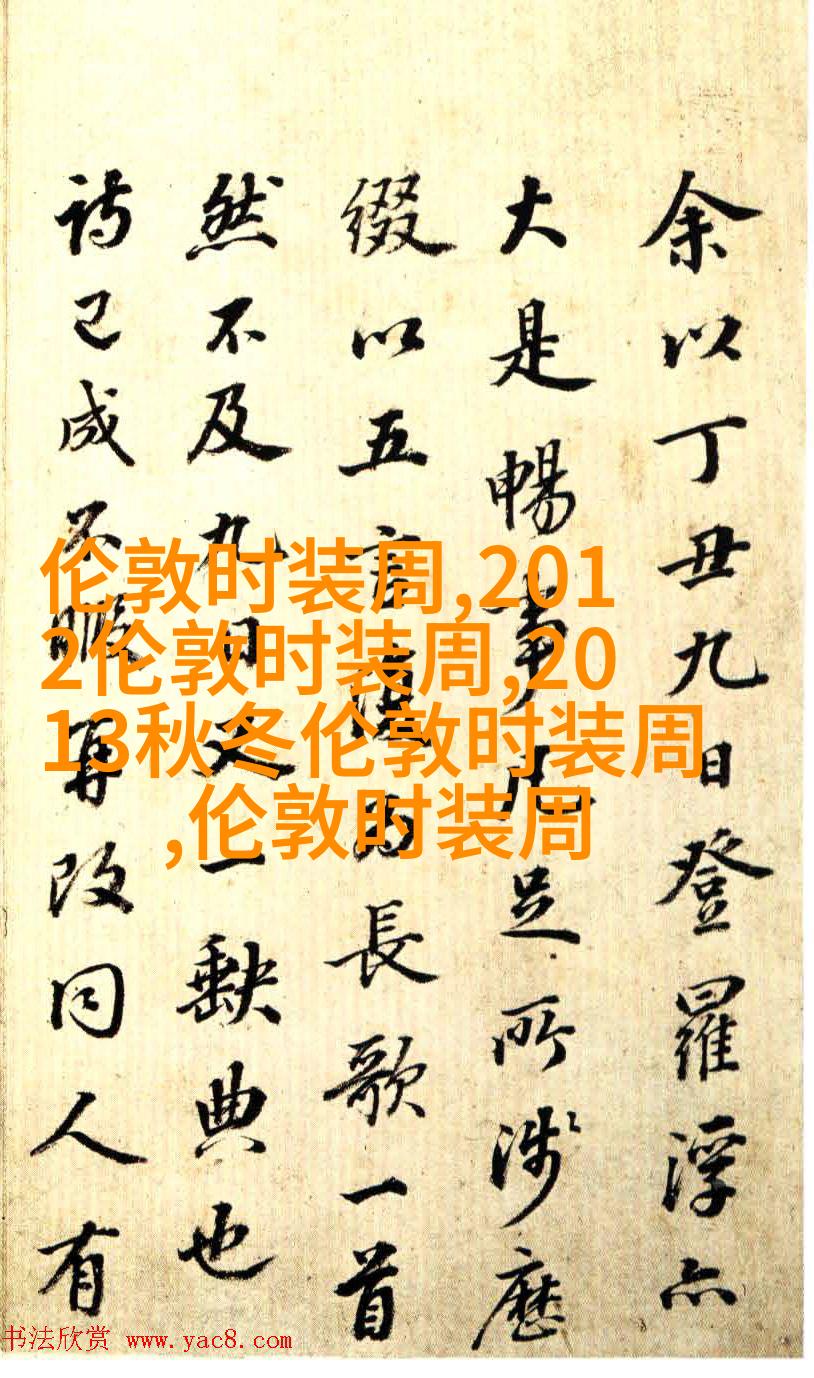 余以丁丑九日登羅浮亦
大是暢事凡足所涉歷
綴以五言復為長歌一首
然不及九日又一缺典也
詩已成不暇再改同人有
伦敦时装周,201
2伦敦时装周,20
13秋冬伦敦时装周
,伦敦时装周
书法欣赏 www.yac8.com